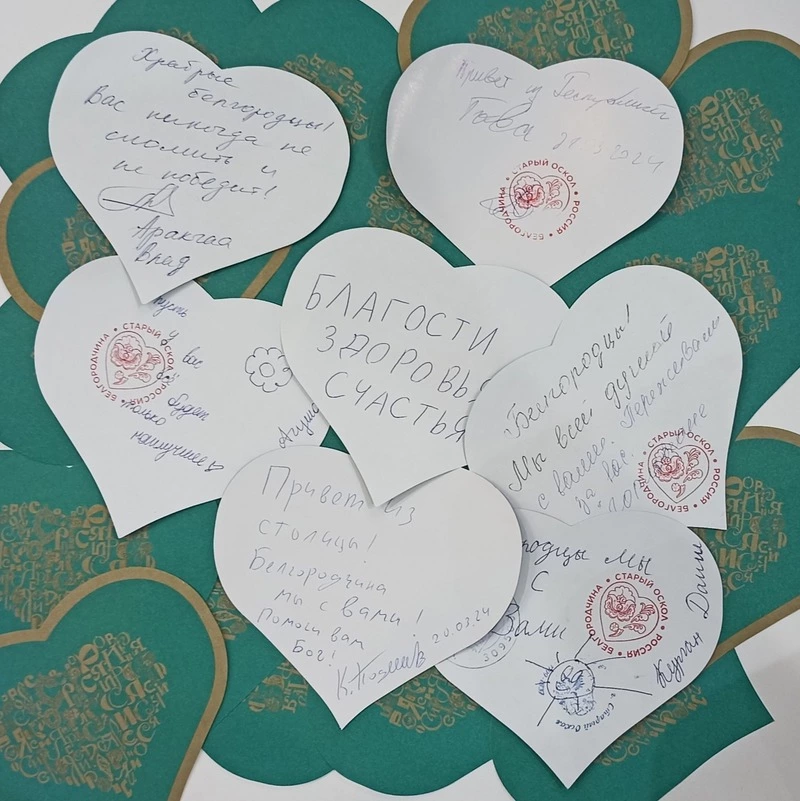 Храбрые
белгородцы!
Вас никогда не
сломить и
не победит!
Аракчаа
Влад
Привет из Республики
Тыва
СТАРЫЙ ОСКОЛ • РОССИЯ • БЕЛГОРОДЧИНА •
пусть
у
вас
будет
только
наилучшее
СТАРЫЙ ОСКОЛ • РОССИЯ • БЕЛГОРОДЧИНА •
БЛАГОСТИ
ЗДОРОВЬЯ
СЧАСТЬЯ
Белгородцы!
Мы всей душой
с вами. Переживаем
за вас.
СТАРЫЙ ОСКОЛ • РОССИЯ • БЕЛГОРОДЧИНА •
Привет из
столицы!
Белгородчина
мы с вами!
Помоги вам
Бог!
20.03.24
родцы мы
с
Вами
Курган
СТАРЫЙ ОСКОЛ • РОССИЯ • БЕЛГОРОДЧИНА •
3095
г. Старый Оскол